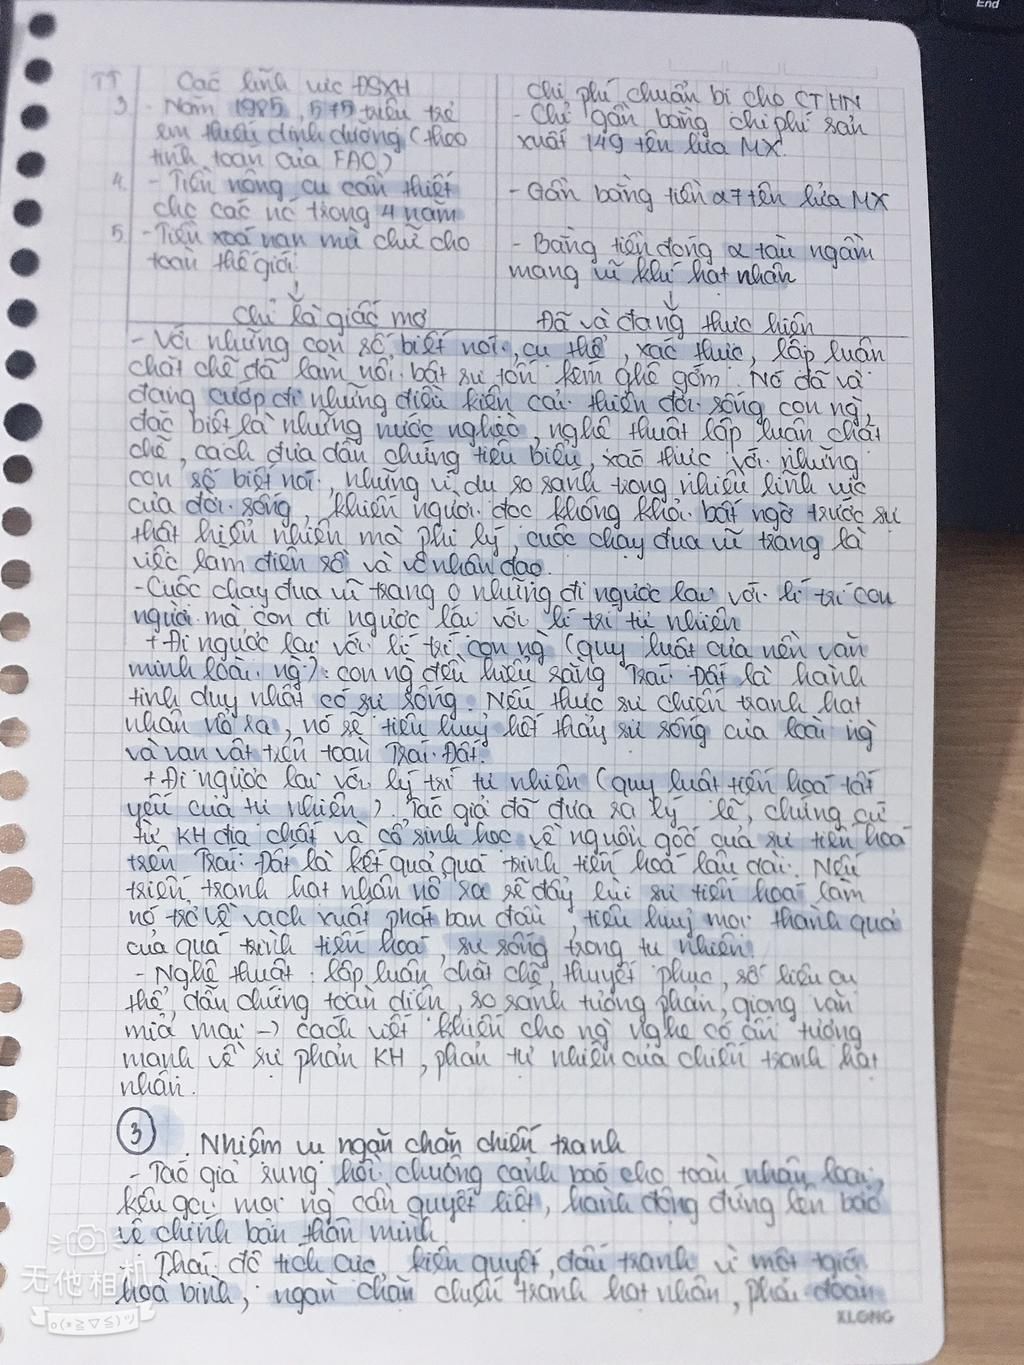 End
TT Các lĩnh vực ĐSXH Chi phí chuẩn bị cho CTHN
3. - Năm 1985, 575 triệu trẻ - Chỉ gần bằng chi phí sản
em thiếu dinh dưỡng (theo xuất 149 tên lửa MX.
tính toán của FAO)
4. - Tiền nông cụ cần thiết - Gần bằng tiền 27 tên lửa MX
cho các nc trong 4 năm
5. - Tiền xoá nạn mù chữ cho - Bằng tiền đóng 2 tàu ngầm
toàn thế giới. mang vũ khí hạt nhân
↓ ↓
Chỉ là giấc mơ Đã và đang thực hiện
- Với những con số biết nói, cụ thể, xác thực, lập luận
chặt chẽ đã làm nổi bật sự tốn kém ghê gớm. Nó đã và
đang cướp đi những điều kiện cải thiện đời sống con ng,
đặc biệt là những nước nghèo, nghệ thuật lập luận chặt
chẽ, cách đưa dẫn chứng tiêu biểu, xác thực với những
con số biết nói, những ví dụ so sánh trong nhiều lĩnh vực
của đời sống, khiến người đọc không khỏi bất ngờ trước sự
thật hiển nhiên mà phi lý, cuộc chạy đua vũ trang là
việc làm điên rồ và vô nhân đạo.
- Cuộc chạy đua vũ trang o những đi ngược lại với lí trí con
người mà còn đi ngược lại với lí trí tự nhiên
+ Đi ngược lại với lí trí con ng (quy luật của nền văn
minh loài ng): con ng đều hiểu rằng Trái Đất là hành
tinh duy nhất có sự sống. Nếu thực sự chiến tranh hạt
nhân nổ ra, nó sẽ tiêu huỷ hết thảy sự sống của loài ng
và vạn vật trên toàn Trái Đất.
+ Đi ngược lại với lý trí tự nhiên (quy luật tiến hoá tất
yếu của tự nhiên). Tác giả đã đưa ra lý lẽ, chứng cứ
từ KH địa chất và cổ sinh học về nguồn gốc của sự tiến hoá
trên Trái Đất là kết quả quá trình tiến hoá lâu dài. Nếu
triến tranh hạt nhân nổ ra sẽ đẩy lùi sự tiến hoá làm
nó trở về vạch xuất phát ban đầu, tiêu huỷ mọi thành quả
của quá trình tiến hoá, sự sống trong tự nhiên.
- Nghệ thuật: lập luận chặt chẽ, thuyết phục, số liệu cụ
thể, dẫn chứng toàn diện, so sánh tương phản, giọng văn
mỉa mai → cách viết khiến cho ng nghe có ấn tượng
mạnh về sự phản KH, phản tự nhiên của chiến tranh hạt
nhân.
3. Nhiệm vụ ngăn chặn chiến tranh
- Tác giả rung hồi chuông cảnh báo cho toàn nhân loại,
kêu gọi mọi ng cần quyết liệt, hành động đứng lên bảo
vệ chính bản thân mình.
- Thái độ tích cực, kiên quyết, đấu tranh vì một tgiới
hoà bình, ngăn chặn chiến tranh hạt nhân, phải đoàn
无他相机
o(*≧▽≦)ツ
KLONG